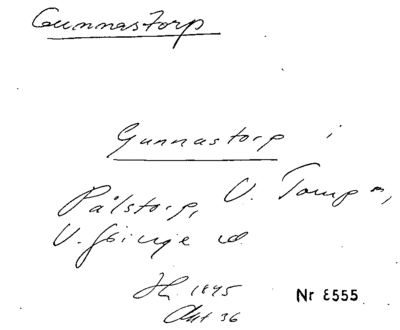 Gunnastorp
Gunnastorp i
Pålstorp, V. Torup sn,
V. Göinge hd
1845
Akt 36
Nr 8555